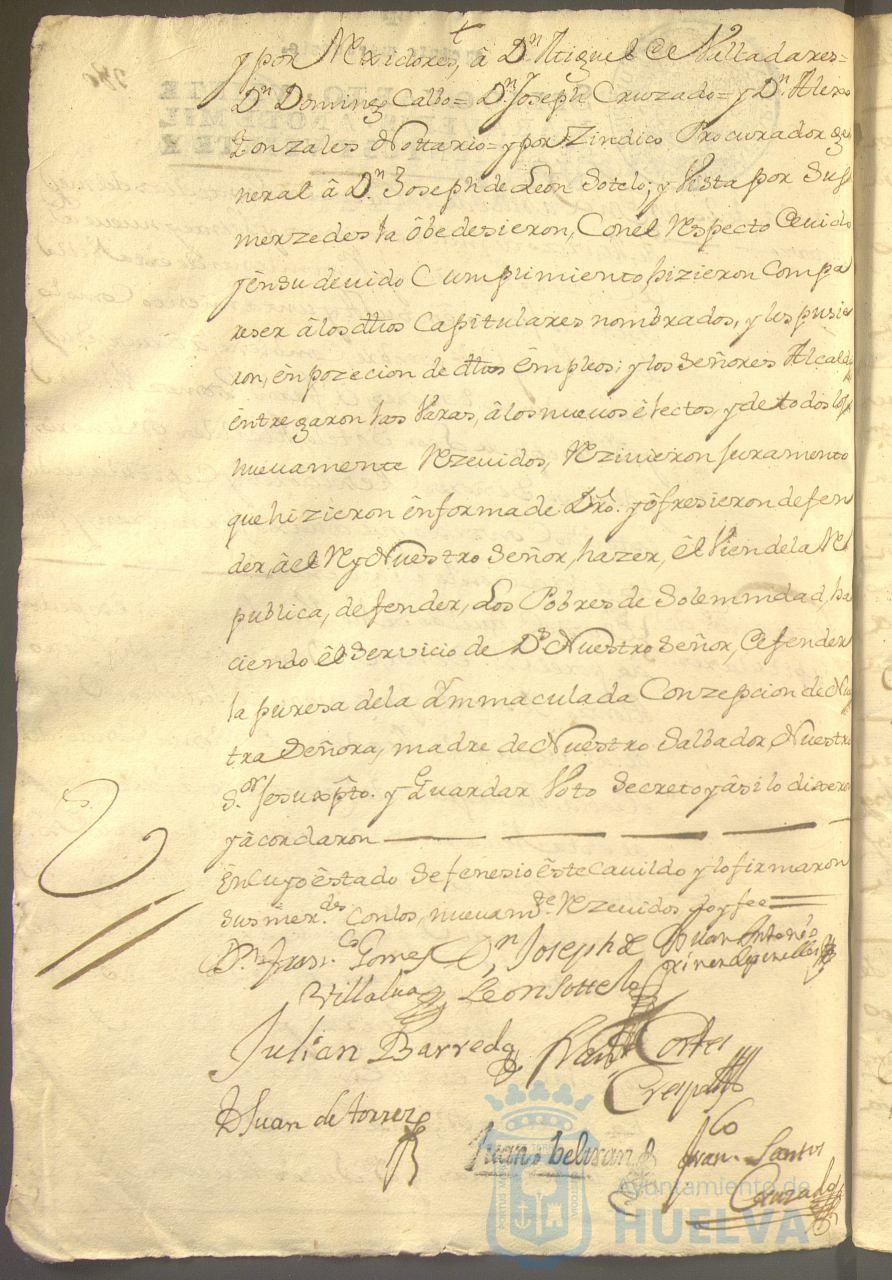 y por Rexidores, â Dn. Miguel de Valladares=
Dn Domingo Calbo= Dn. Joseph Cruzado= y Dn. Alexo
Gonzales Nottario= y por Zindico Procurador ge
neral â Dn. Joseph de Leon Sotelo; y Vista por Sus
merzedes la ôbedesieron, Con el Respecto deuido
y ên su deuido Cumplimiento hizieron Compa
reser â los dhos Capitulares nombrados, y les pusie
ron, ên pozecion de dhos êmpleos; y los Señores Alcaldes
êntregaron las Varas, â los nuevos êlectos, y de todos los
nuevamente Rezeuidos, Rezivieron juramento
que hizieron ên forma de Dro. y ôfresieron defen
der, â el Rey Nuestro Señor, hazer, êl Vien de la Re
publica, defender, Los Pobres de Solemnidad, ha
ciendo êl Servicio de Ds. Nuestro Señor, Defender
la puresa de la Ymmaculada Conzepcion de Nues
tra Señora, madre de Nuestro Salbador, Nuestro
Sor. Jesuxpto. y Guardar Voto Secreto y âsi lo dixeron
y âcordaron
Ên Cuyo êstado Se fenesio êste Cauildo y lo firmaron
Sus merdes. Con los, nuevamte. Rezeuidos doy fee=
Dn. Fransco. Gomes Dn. Joseph de Juan Antonio
Villalua Leon Sottelo
Julian Barreda Cortes
Crespo
D Juan de torres
Juano beltran Franco Santos
Cruzado
Ayuntamiento de
HUELVA